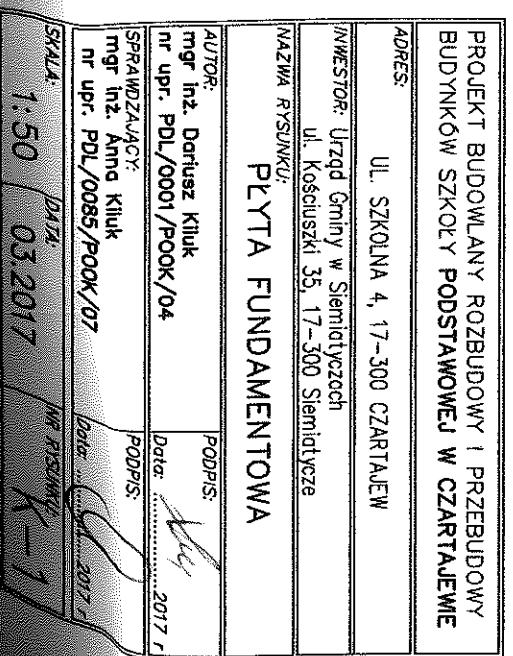 PROJEKT BUDOWLANY ROZBUDOWY I PRZEBUDOWY
BUDYNKÓW SZKOŁY PODSTAWOWEJ W CZARTAJEWIE
ADRES:
UL. SZKOLNA 4, 17-300 CZARTAJEW
INWESTOR: Urząd Gminy w Siemiatyczach
ul. Kościuszki 35, 17-300 Siemiatycze
NAZWA RYSUNKU:
PŁYTA FUNDAMENTOWA
AUTOR:
mgr inż. Dariusz Kiluk
nr upr. PDL/0001/POOK/04
PODPIS:
Data: ..............2017 r
SPRAWDZAJĄCY:
mgr inż. Anna Kiluk
nr upr. PDL/0085/POOK/07
PODPIS:
Data: ..............2017 r
SKALA: 1:50
DATA: 03.2017
NR RYSUNKU: K-1